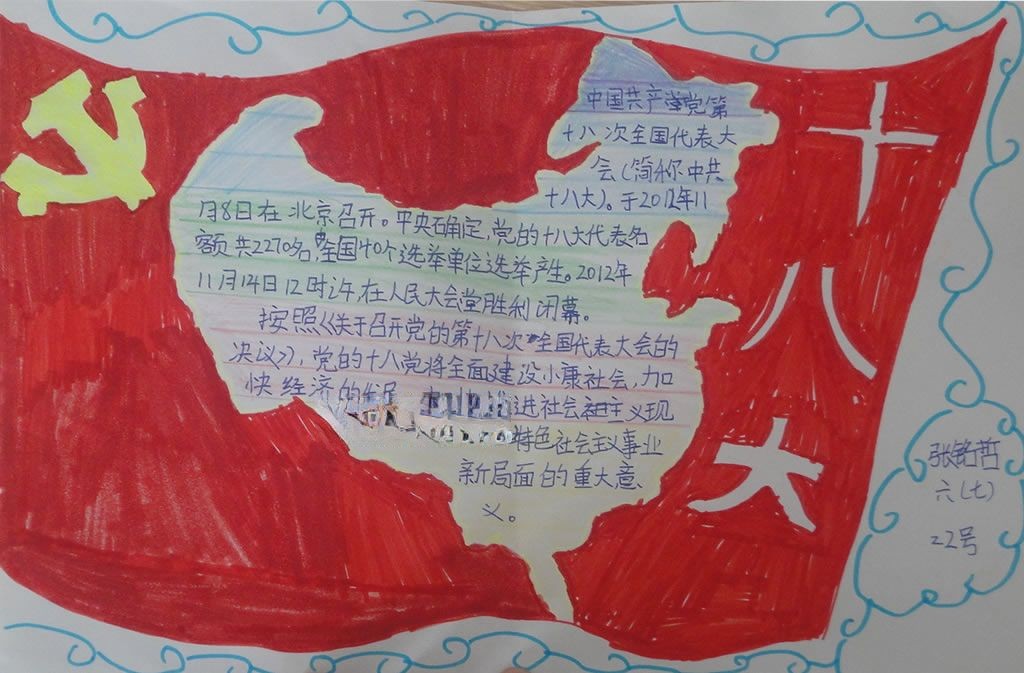 中国共产党第
十八次全国代表大
会(简称中共
十八大)。于2012年11
月8日在北京召开。中央确定,党的十八大代表名
额共2270名,由全国40个选举单位选举产生。2012年
11月14日12时许,在人民大会堂胜利闭幕。
按照《关于召开党的第十八次全国代表大会的
决议》,党的十八党将全面建设小康社会,加
快经济的
进社会主义现
特色社会主义事业
新局面的重大意
义。
十八大
张铭哲
六(七)
22号